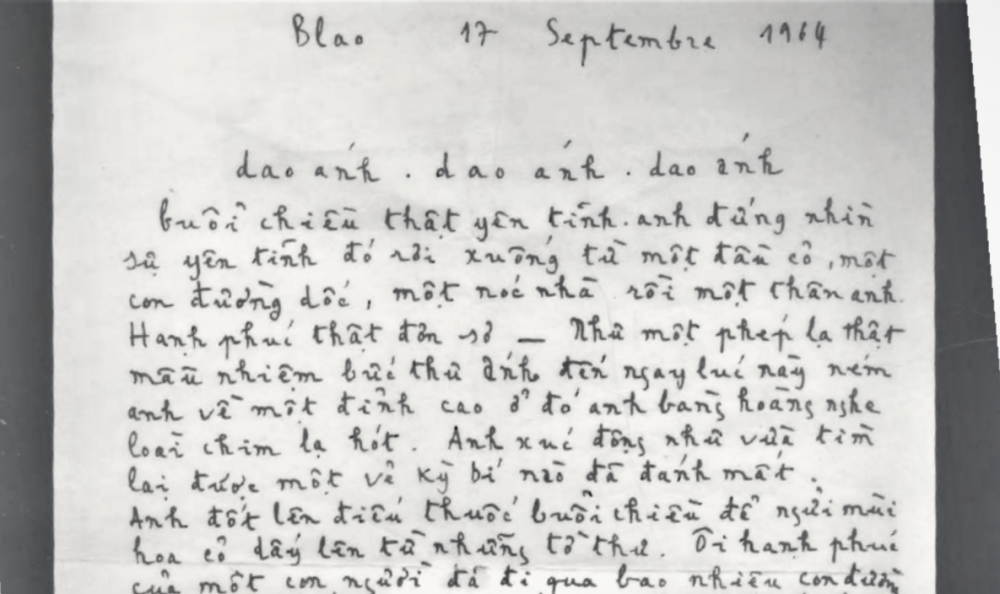 Blao 17 Septembre 1964
dao ánh . dao ánh . dao ánh
buổi chiều thật yên tĩnh. anh đứng nhìn
sự yên tĩnh đó rơi xuống từ một đầu cỏ, một
con đường dốc, một nóc nhà rồi một thân anh.
Hạnh phúc thật đơn sơ — Như một phép lạ thật
mầu nhiệm bức thư Ánh đến ngay lúc này ném
anh về một đỉnh cao ở đó anh bàng hoàng nghe
loài chim lạ hót. Anh xúc động như vừa tìm
lại được một vẻ kỳ bí nào đã đánh mất.
Anh đốt lên điếu thuốc buổi chiều để ngửi mùi
hoa cỏ dấy lên từ những tờ thư. Ôi hạnh phúc
của một con người đã đi qua bao nhiêu con đường